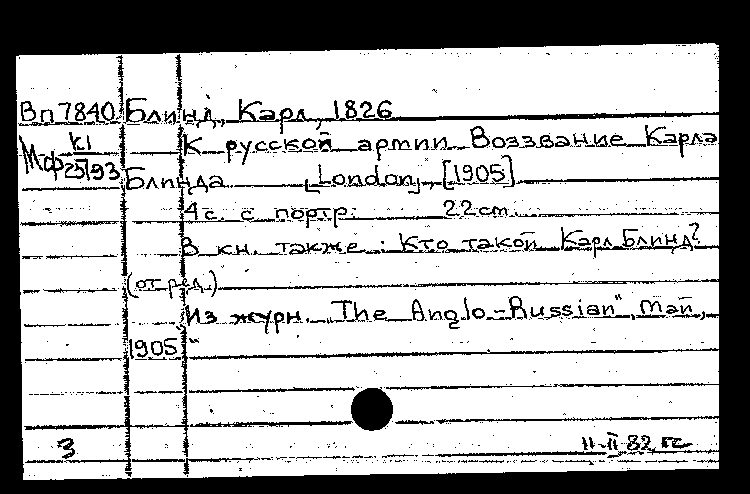 Вп 7840 Блинд, Карл, 1826
К русской армии. Воззвание Карла
Мф К1 25/93
Блинда [London], [1905]
4 с. с портр. 22 cm.
В кн. также: Кто такой Карл Блинд?
(от ред.)
Из журн. „The Anglo-Russian", май,
1905"
3 11.II 82